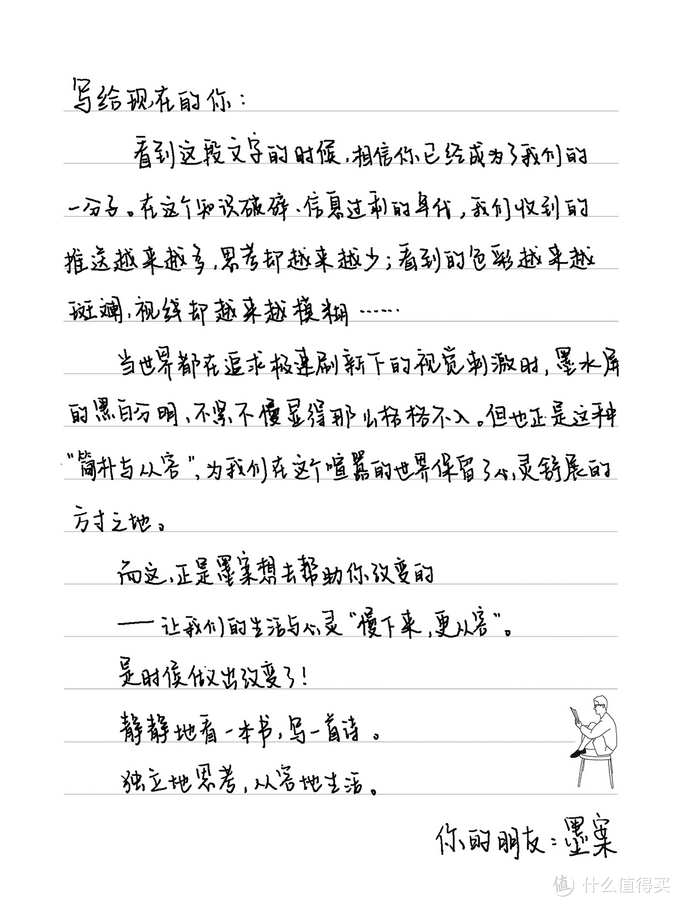 写给现在的你：
看到这段文字的时候，相信你已经成为了我们的
一分子。在这个知识破碎、信息过剩的年代，我们收到的
推送越来越多，思考却越来越少；看到的色彩越来越
斑斓，视线却越来越模糊……
当世界都在追求极速刷新下的视觉刺激时，墨水屏
的黑白分明、不紧不慢显得那么格格不入。但也正是这种
“简朴与从容”，为我们在这个喧嚣的世界保留了心灵舒展的
方寸之地。
而这，正是墨案想去帮助你改变的
——让我们的生活与心灵“慢下来，更从容”。
是时候做出改变了！
静静地看一本书，写一首诗。
独立地思考，从容地生活。
你的朋友：墨案
值 什么值得买